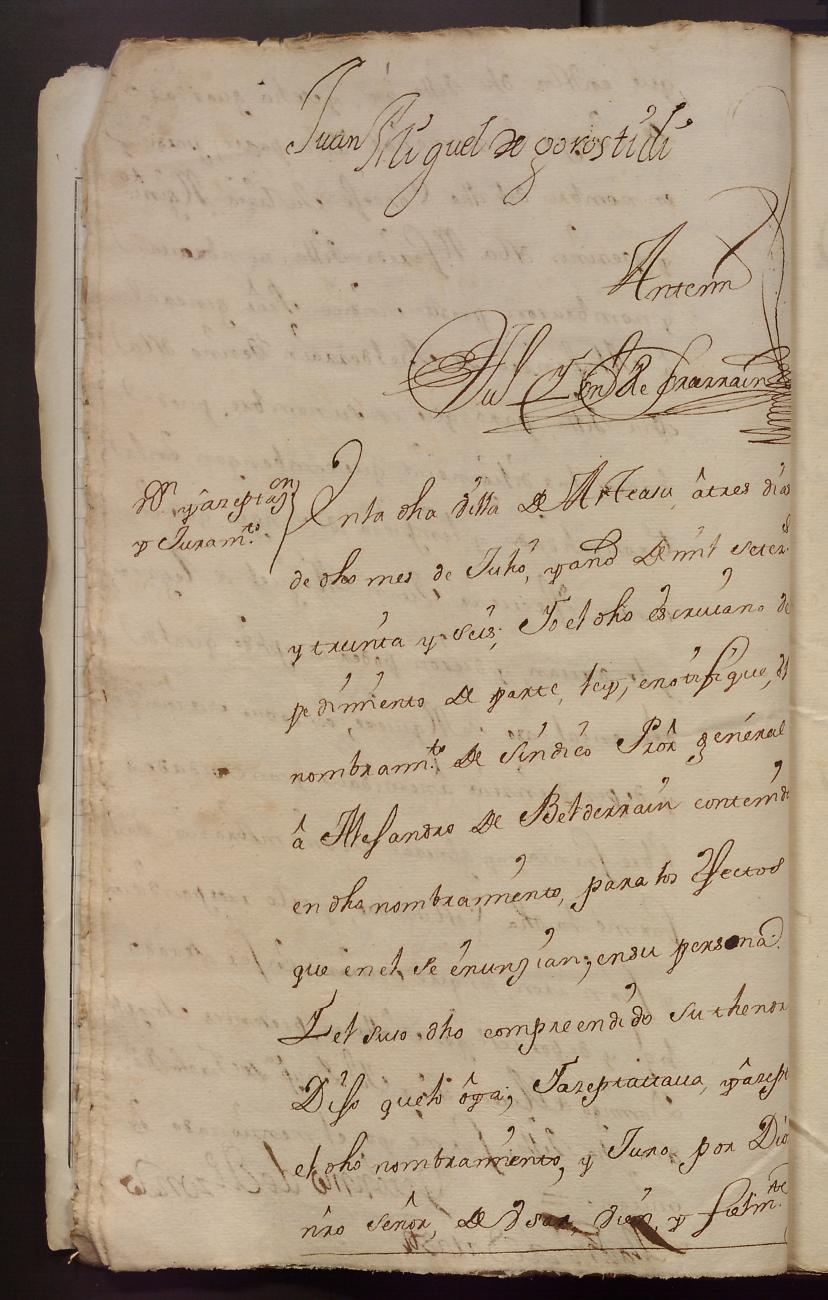 Juan Miguel de gorostidi
Antemi
de Ybarrain
yazeptaⁿ
y Juramto
Enla dha villa de Atteasu, â tres dias
de dho mes de Julio, y año de mil setezˢ
y treinta y seis, Yo el dho escriuano de
pedimiento de parte, ley, enotifique, el
nombramto de sindico Pror general
â Alesandro de Belderrain contenido
en dho nombramiento, para los efectos
que enel se enunzian; ensu persona.
Y el suso dho compreendido su thenor
Dijo quelo oya; Yazeptaua, yazepto
el dho nombramiento, y Juro, por Dios
nro señor, de vsar, vien, y fielmte